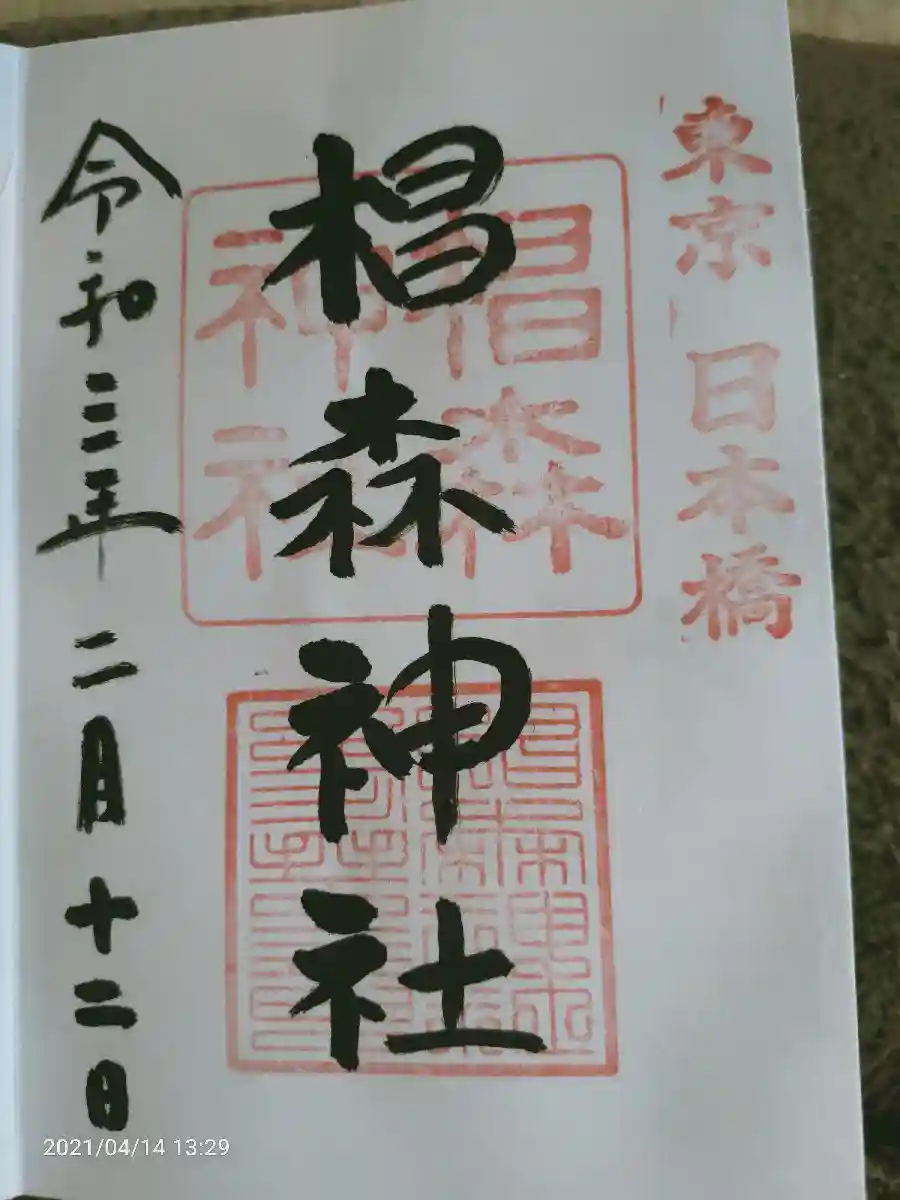 東京 日本橋
椙森神社
椙森
神社
令和三年 二月 十二日
2021/04/14 13:29